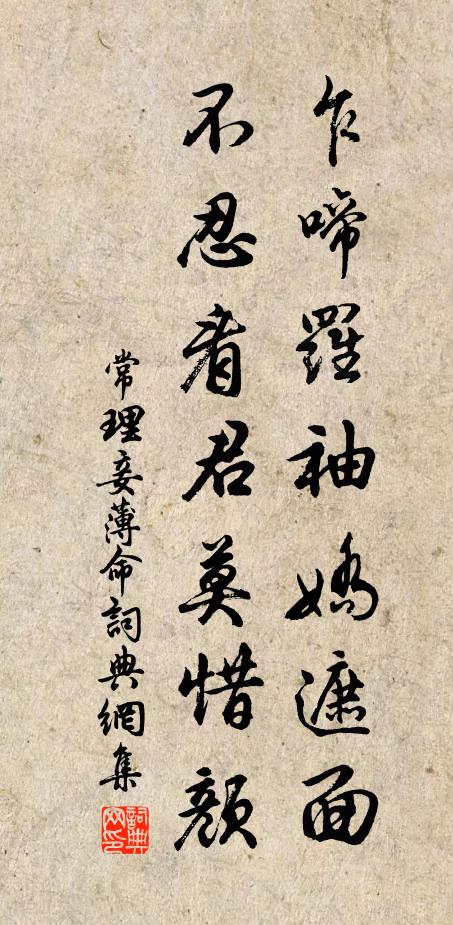 乍啼羅袖嬌遮面
不忍看君莫惜顏
常理妾薄命詞典網集
詞典
网印